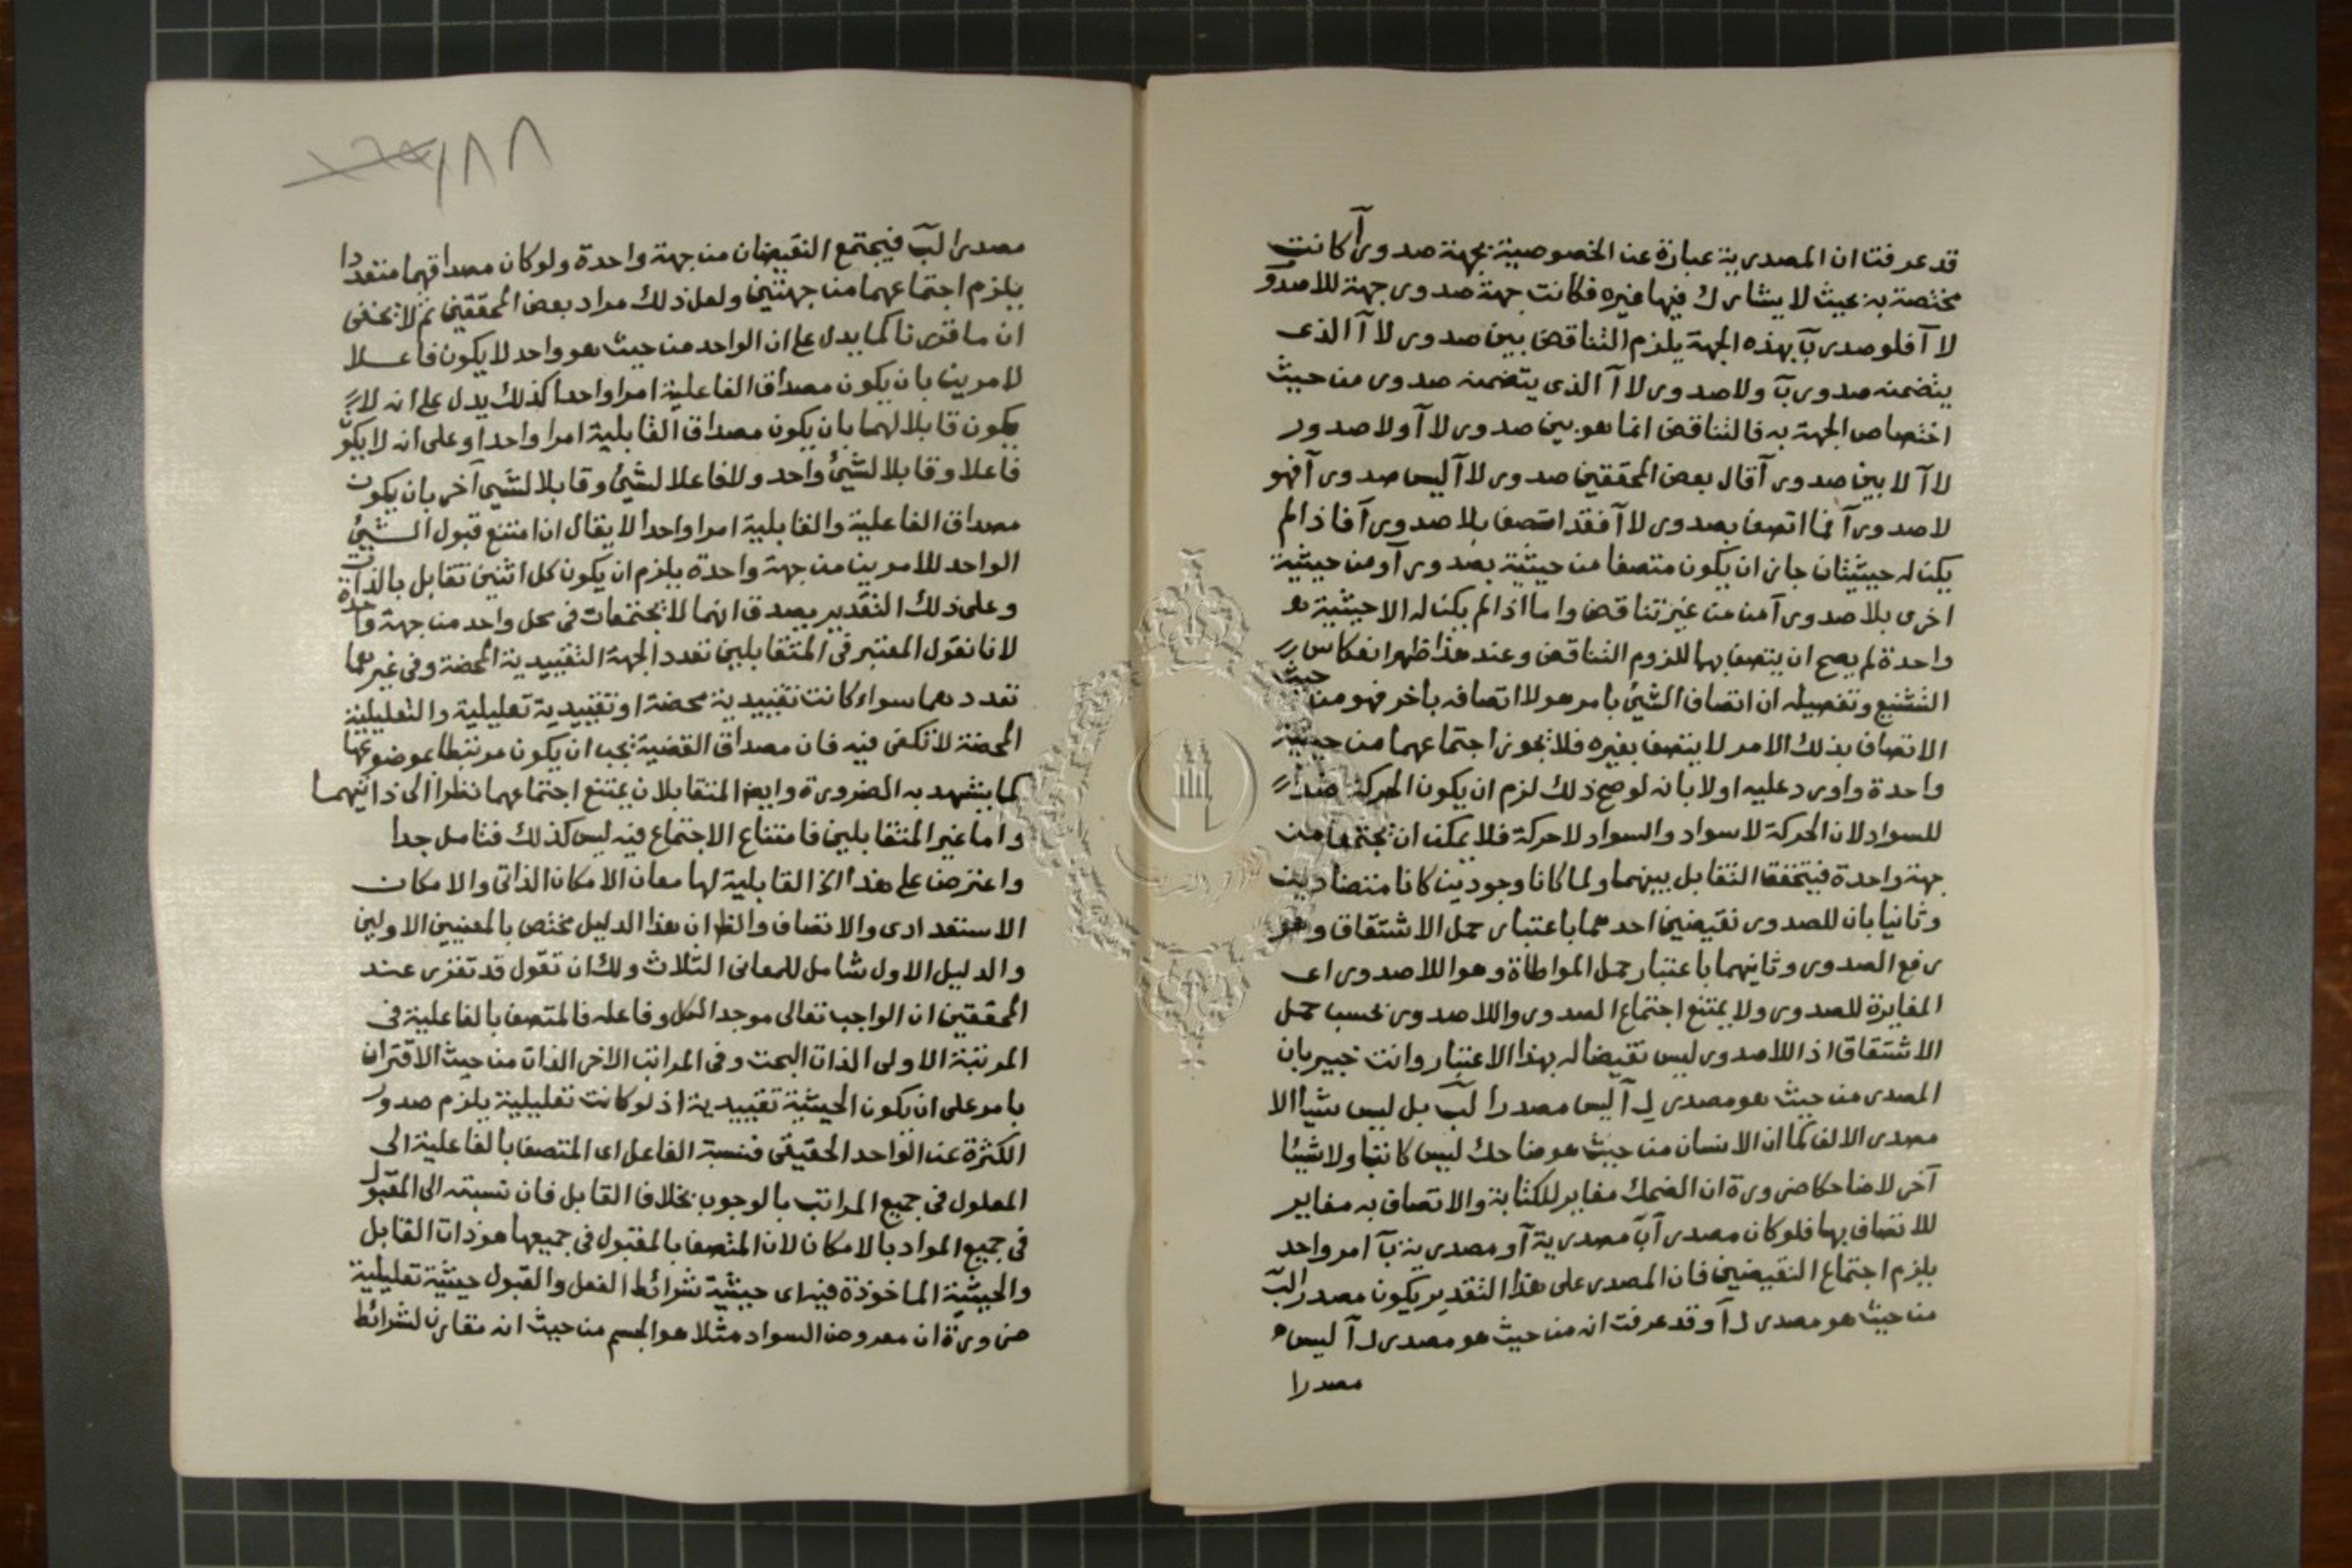 قد عرفت ان المصدرية عبارة عن الخصوصية بجهة صدور آ كانت
مختصة به بحيث لا يشارك فيها غيره فكانت جهة صدور جهة للاصدور
لا آ فلو صدر بّ بهذه الجهة يلزم التناقض بين صدور لا آ الذى
يتضمنه صدور بّ ولا صدور لا آ الذى يتضمنه صدور من حيث
اختصاص الجهة به فالتناقض انما هو بين صدور لا آ ولا صدور
لا آ لا بين صدور آ قال بعض المحققين صدور لا آ ليس صدور آ فهو
لا صدور آ فما اتصف بصدور لا آ فقد اتصف بلا صدور آ فاذا لم
يكن له حيثيتان جاز ان يكون متصفا من حيثية بصدور آ ومن حيثية
اخرى بلا صدور آ من غير تناقض واما اذا لم يكن له الا حيثية
واحدة لم يصح ان يتصف بهما للزوم التناقض وعند هذا ظهر انعكاس
التشنيع وتفصيله ان اتصاف الشئ بامر هو لا اتصافه بآخر فهو من حيث
الاتصاف بذلك الامر لا يتصف بغيره فلا يجوز اجتماعهما من حيثية
واحدة واورد عليه اولا بانه لو صح ذلك لزم ان يكون الحركة ضدا
للسواد لان الحركة لا سواد والسواد لا حركة فلا يمكن ان يجتمعا من
جهة واحدة فيتحقق التقابل بينهما ولما كانا وجوديين كانا متضادين
وثانيا بان للصدور نقيضين احدهما باعتبار حمل الاشتقاق وهو
رفع الصدور وثانيهما باعتبار حمل المواطاة وهو اللاصدور اى
المغايرة للصدور ولا يمتنع اجتماع الصدور واللاصدور بحسب حمل
الاشتقاق اذ اللاصدور ليس نقيضا له بهذا الاعتبار وانت خبير بان
المصدر من حيث هو مصدر لـ آ ليس مصدرا لبّ بل ليس شيأ الا
مصدر الالف كما ان الانسان من حيث هو ضاحك ليس كاتبا ولا شيئا
آخر لا ضاحكا ضرورة ان الضحك مغاير للكتابة والاتصاف به مغاير
للاتصاف بها فلو كان مصدر آبّ مصدرية آ ومصدرية بّ امر واحد
يلزم اجتماع النقيضين فان المصدر على هذا التقدير يكون مصدرا لبّ
من حيث هو مصدر لـ آ وقد عرفت انه من حيث هو مصدر لـ آ ليس
مصدرا
١٨٨
مصدرا لبّ فيجتمع النقيضان من جهة واحدة ولو كان مصداقهما متعددا
يلزم اجتماعهما من جهتين ولعل ذلك مراد بعض المحققين ثم لا يخفى
ان ما قررنا كما يدل على ان الواحد من حيث هو واحد لا يكون فاعلا
لامرين بان يكون مصداق الفاعلية امرا واحدا كذلك يدل على انه لا
يكون قابلا لهما بان يكون مصداق القابلية امرا واحدا وعلى انه لا يكون
فاعلا وقابلا لشئ واحد ولا فاعلا لشئ وقابلا لشئ آخر بان يكون
مصداق الفاعلية والقابلية امرا واحدا لا يقال ان امتنع قبول الشئ
الواحد للامرين من جهة واحدة يلزم ان يكون كل اثنين تقابل بالذات
وعلى ذلك التقدير يصدق انهما لا يجتمعان فى محل واحد من جهة واحدة
لانا نقول المعتبر فى المتقابلين تعدد الجهة التقييدية المحضة وفى غيرهما
تعددهما سواء كانت تقييدية محضة او تقييدية تعليلية والتعليلية
المحضة لا تكفى فيه فان مصداق القضية يجب ان يكون مرتبطا بموضوعها
كما يشهد به الضرورة وايضا المتقابلان يمتنع اجتماعهما نظرا الى ذاتيهما
واما غير المتقابلين فامتناع الاجتماع فيه ليس كذلك فتأمل جدا
واعترض على هذا القابلية لها معان الامكان الذاتى والامكان
الاستعدادى والاتصاف والظ ان هذا الدليل مختص بالمعنيين الاولين
والدليل الاول شامل للمعانى الثلاث ولك ان تقول قد تقرر عند
المحققين ان الواجب تعالى موجد الكل وفاعله فالمتصف بالفاعلية فى
المرتبة الاولى الذات البحت وفى المراتب الاخر الذات من حيث الاقتران
بامر على ان يكون الحيثية تقييدية اذ لو كانت تعليلية يلزم صدور
الكثرة عن الواحد الحقيقى فنسبة الفاعل اى المتصف بالفاعلية الى
المعلول فى جميع المراتب بالوجوب بخلاف القابل فان نسبته الى المقبول
فى جميع المواد بالامكان لان المتصف بالمقبول فى جميعها هو ذات القابل
والحيثية الماخوذة فيه اى حيثية شرائط الفعل والقبول حيثية تعليلية
ضرورة ان معروض السواد مثلا هو الجسم من حيث انه مقارن لشرائط